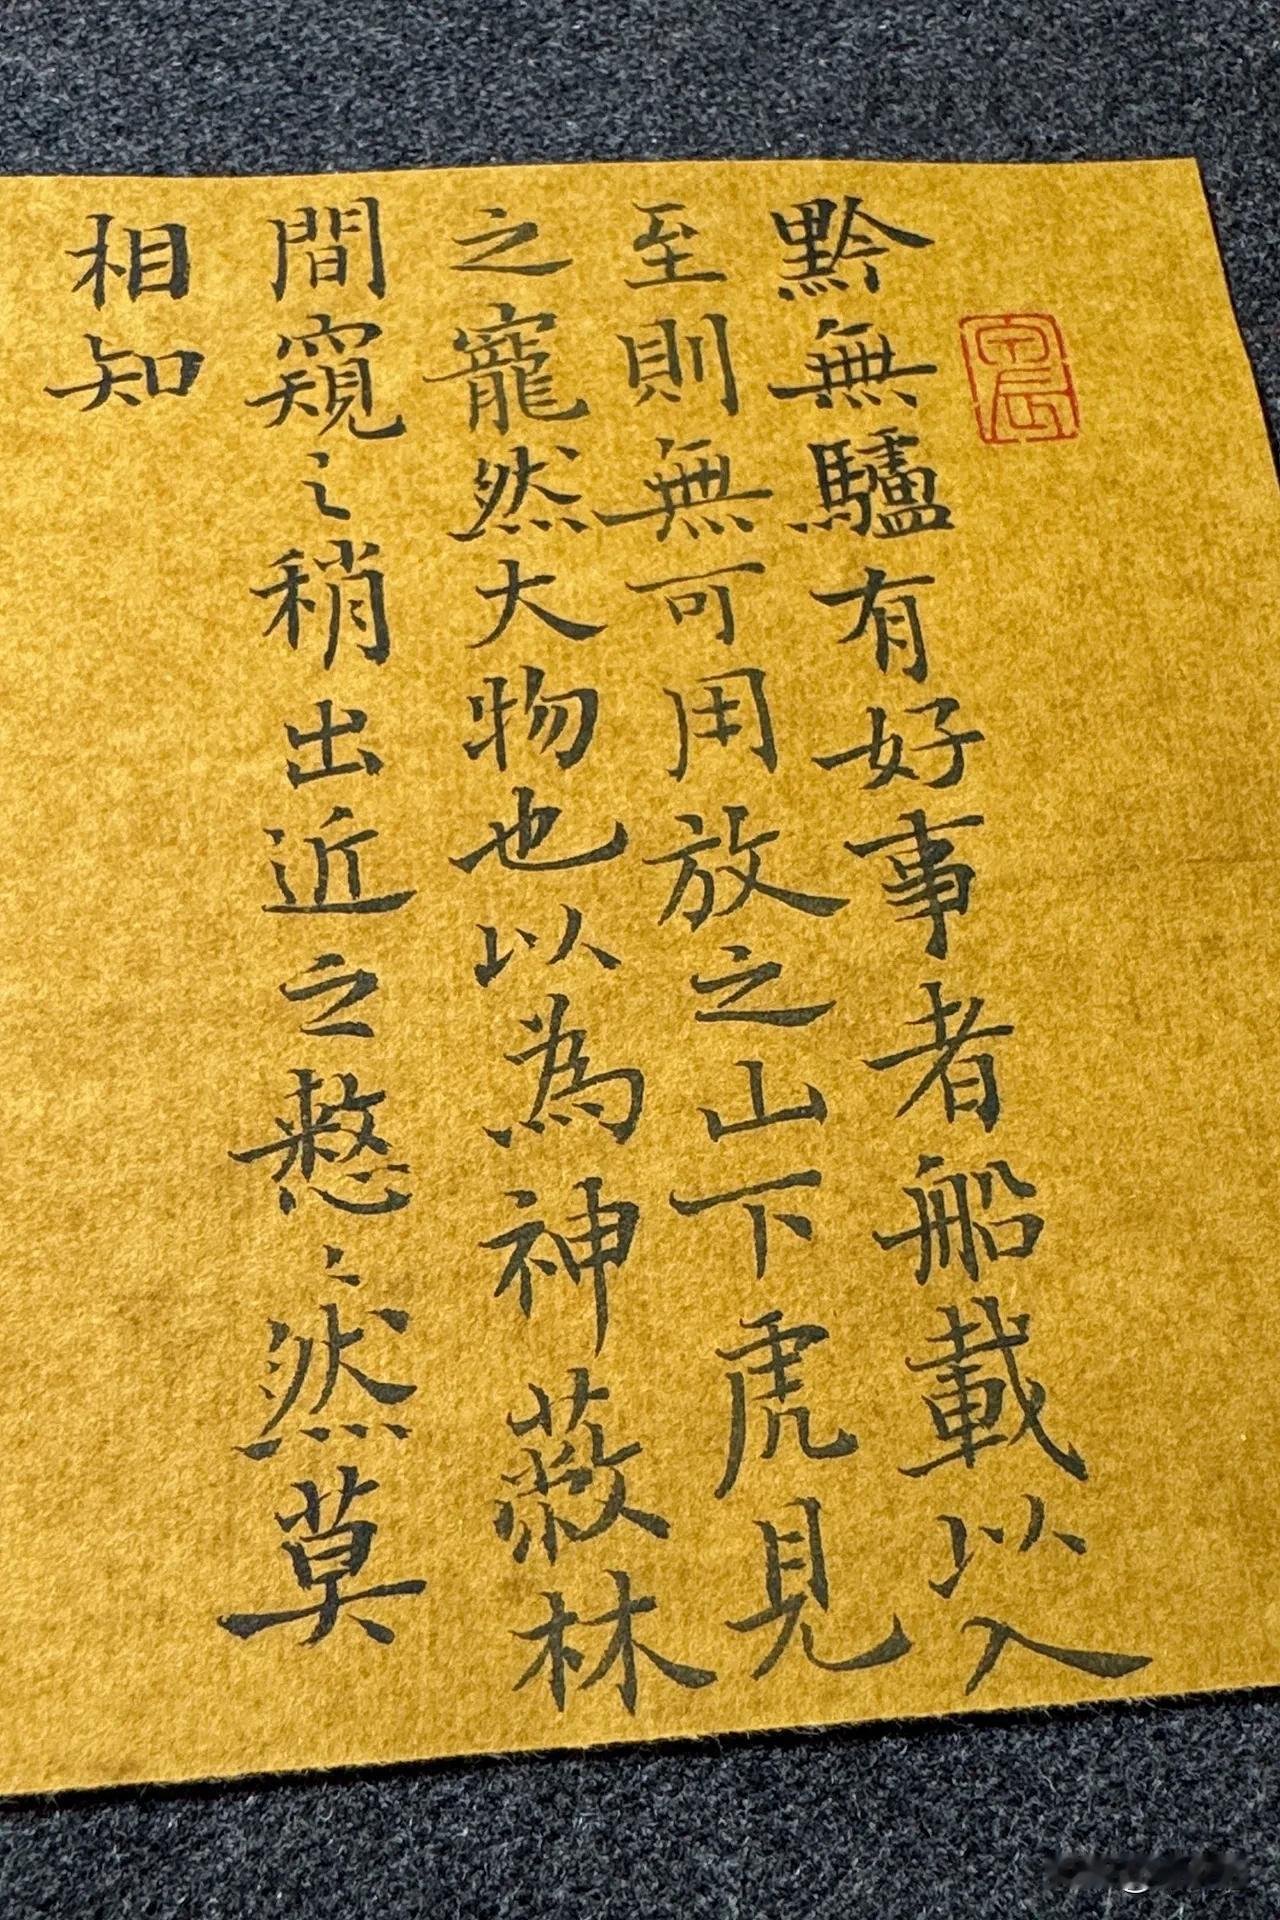 黔無驢有好事者船載以入
至則無可用放之山下虎見
之寵然大物也以為神蔽林
間窺之稍出近之憖〻然莫
相知